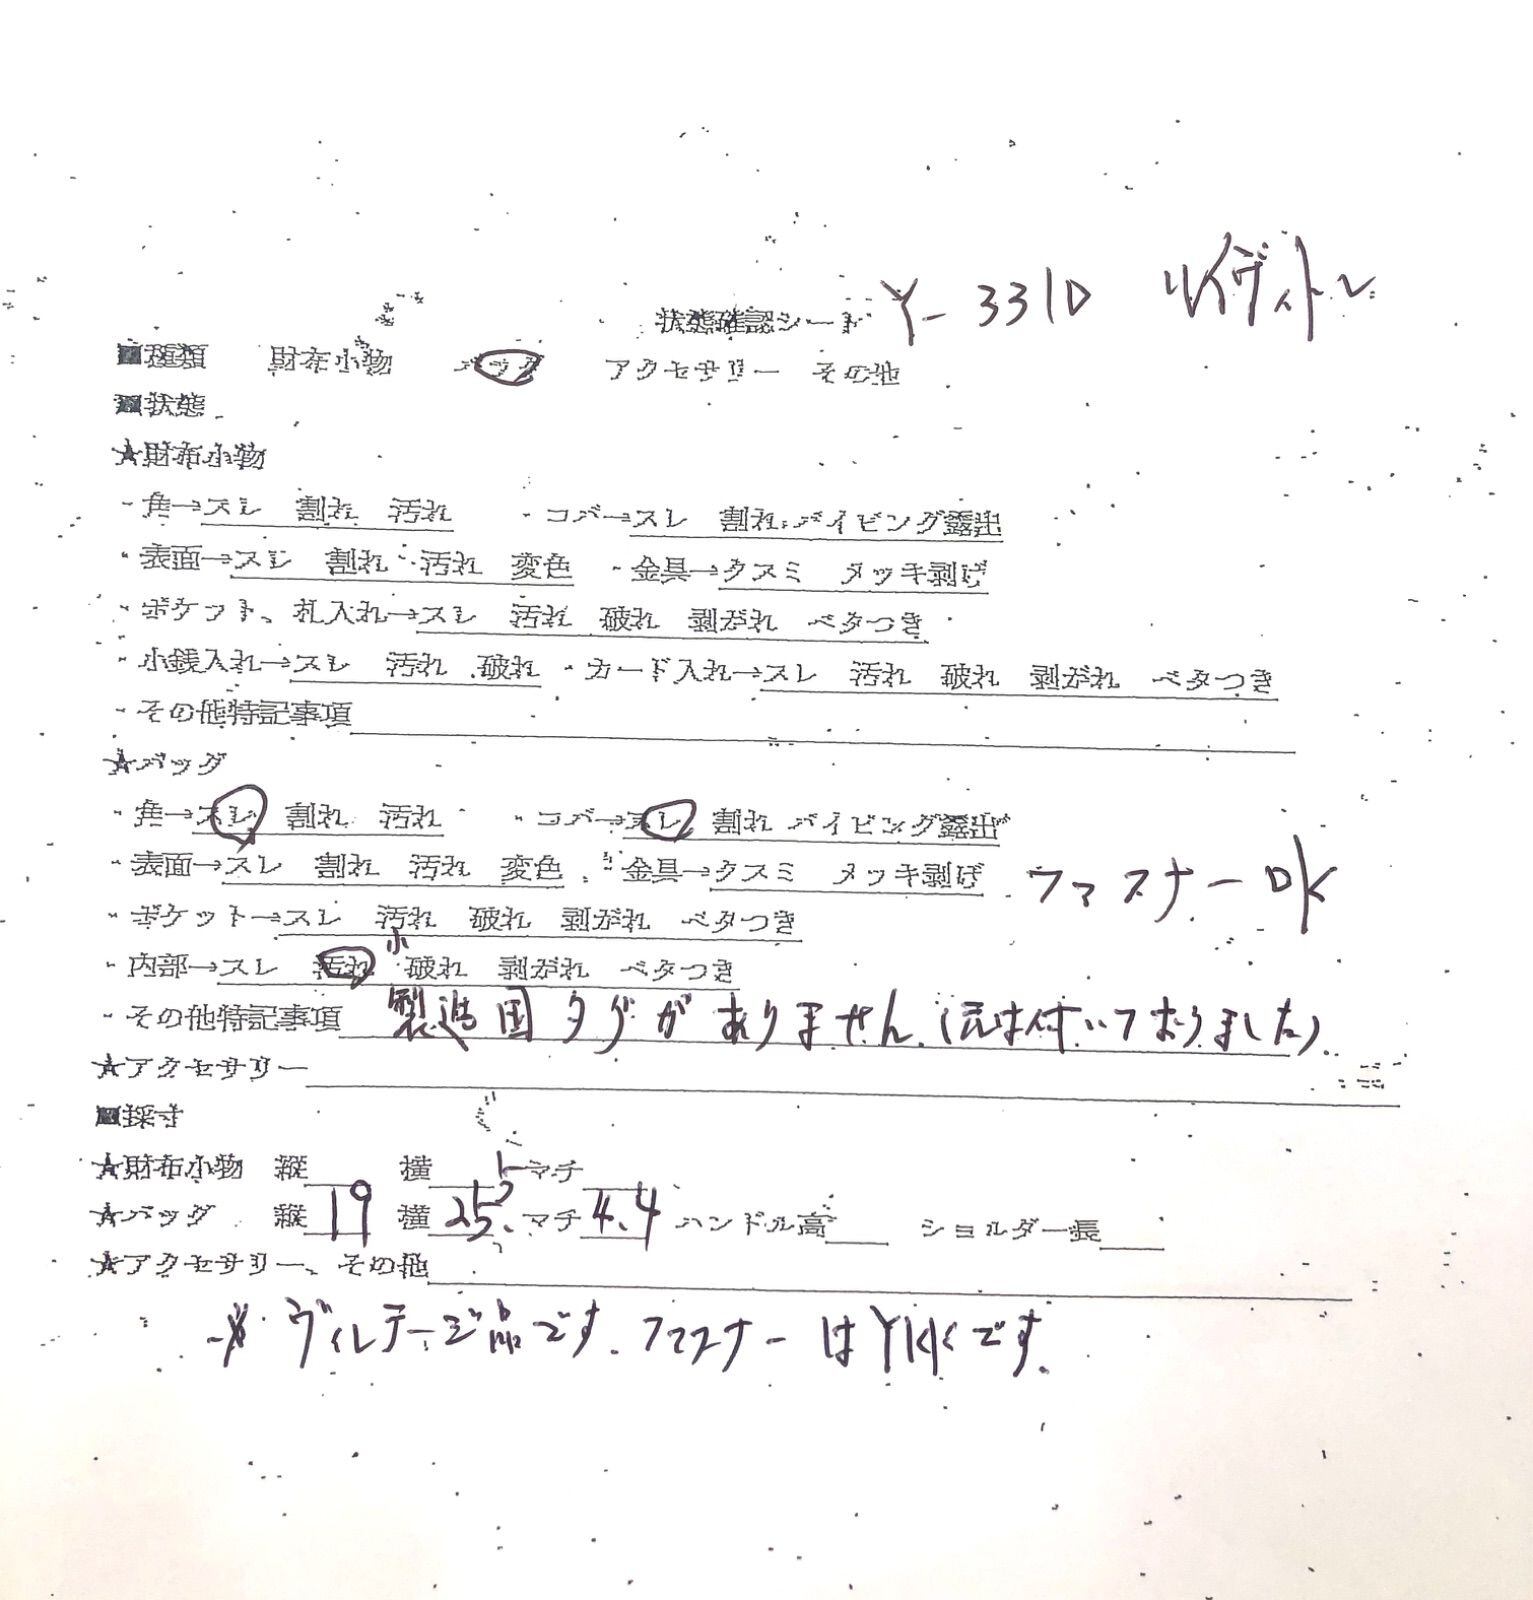 状態確認シート Y-3310 ルイヴィトン
■種類 財布小物 バッグ アクセサリー その他
■状態
★財布小物
・角→スレ 割れ 汚れ ・コバ→スレ 割れ パイピング露出
・表面→スレ 割れ 汚れ 変色 ・金具→クスミ メッキ剥げ
・ポケット、札入れ→スレ 汚れ 破れ 剥がれ ベタつき
・小銭入れ→スレ 汚れ 破れ ・カード入れ→スレ 汚れ 破れ 剥がれ ベタつき
・その他特記事項
★バッグ
・角→スレ 割れ 汚れ ・コバ→スレ 割れ パイピング露出
・表面→スレ 割れ 汚れ 変色 ・金具→クスミ メッキ剥げ ファスナーOK
・ポケット→スレ 汚れ 破れ 剥がれ ベタつき
・内部→スレ 汚れ 小 破れ 剥がれ ベタつき
・その他特記事項 製造国タグがありません.(元は付いておりました)
★アクセサリー
■採寸
★財布小物 縦 横 マチ
★バッグ 縦 19 横 25.5 マチ 4.4 ハンドル高 ショルダー長
★アクセサリー、その他
※ヴィンテージ品です.ファスナーはYKKです.